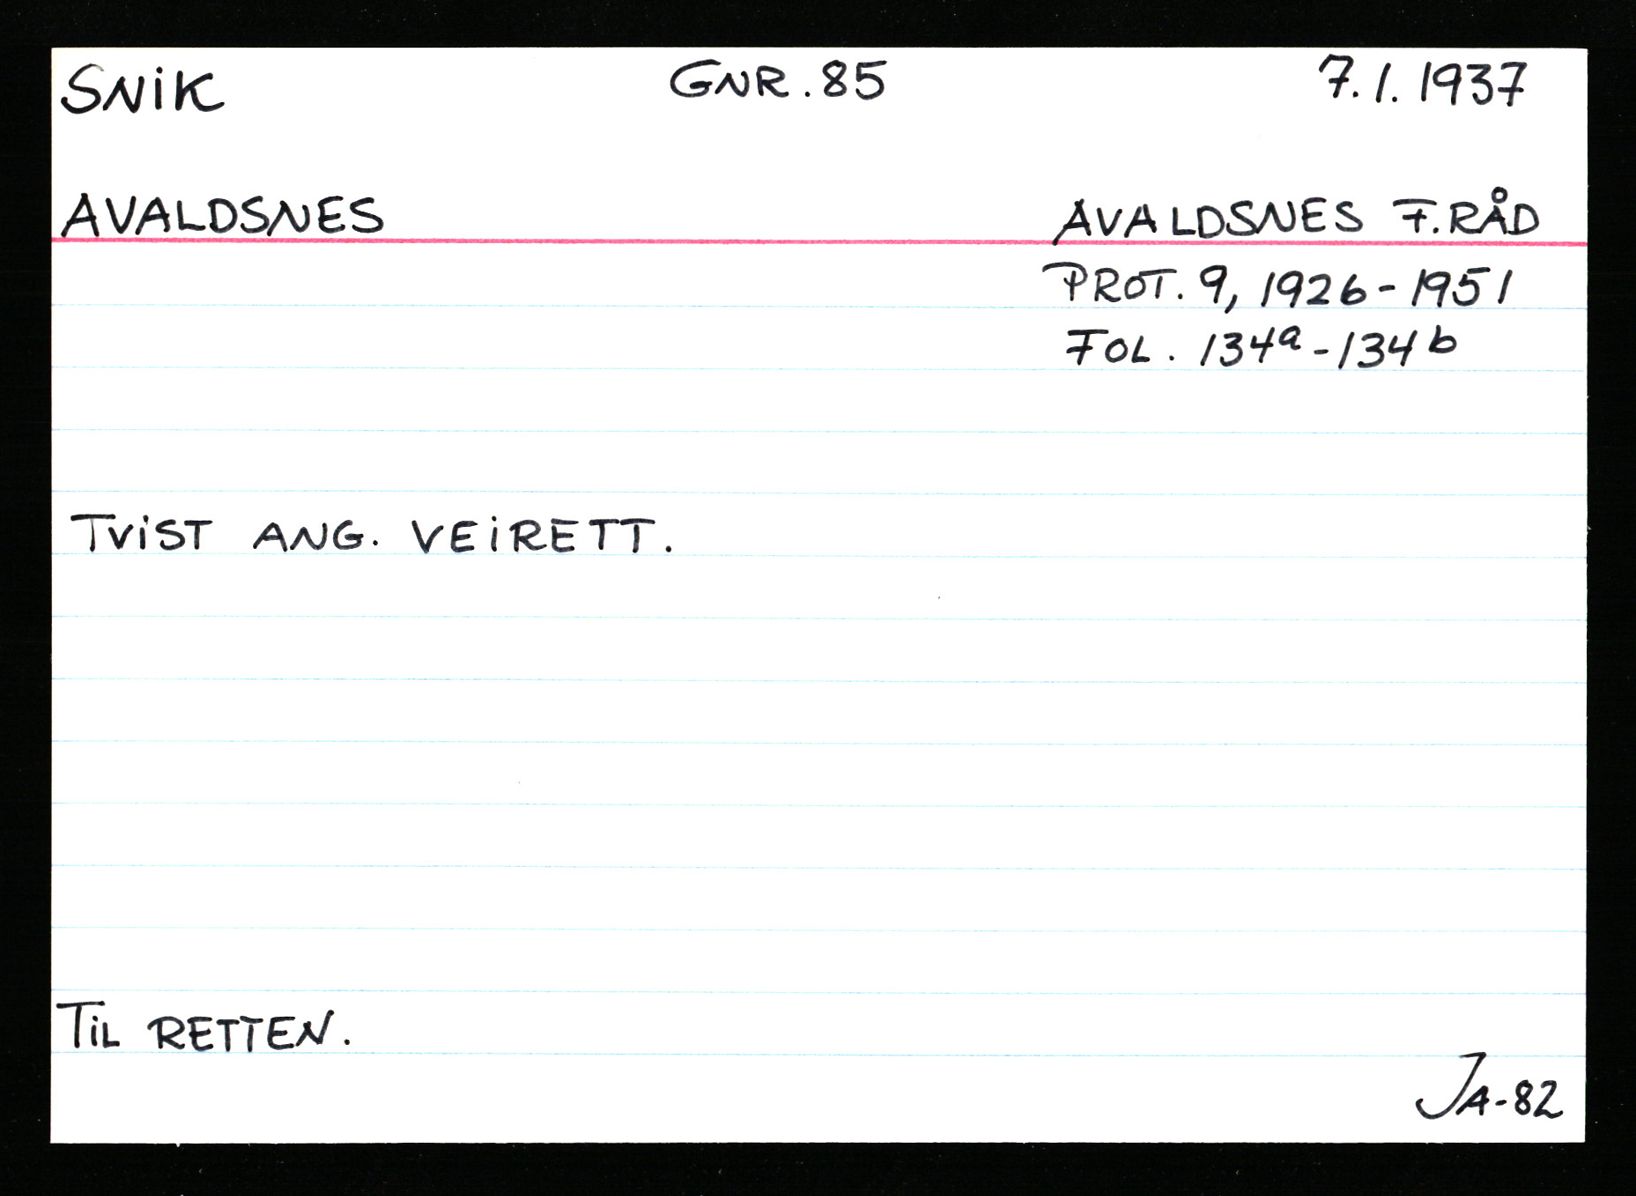 SNIK GNR. 85 7.1.1937
AVALDSNES AVALDSNES F.RÅD
PROT. 9, 1926-1951
FOL. 134a-134b
TVIST ANG. VEIRETT.
TIL RETTEN.
JA-82